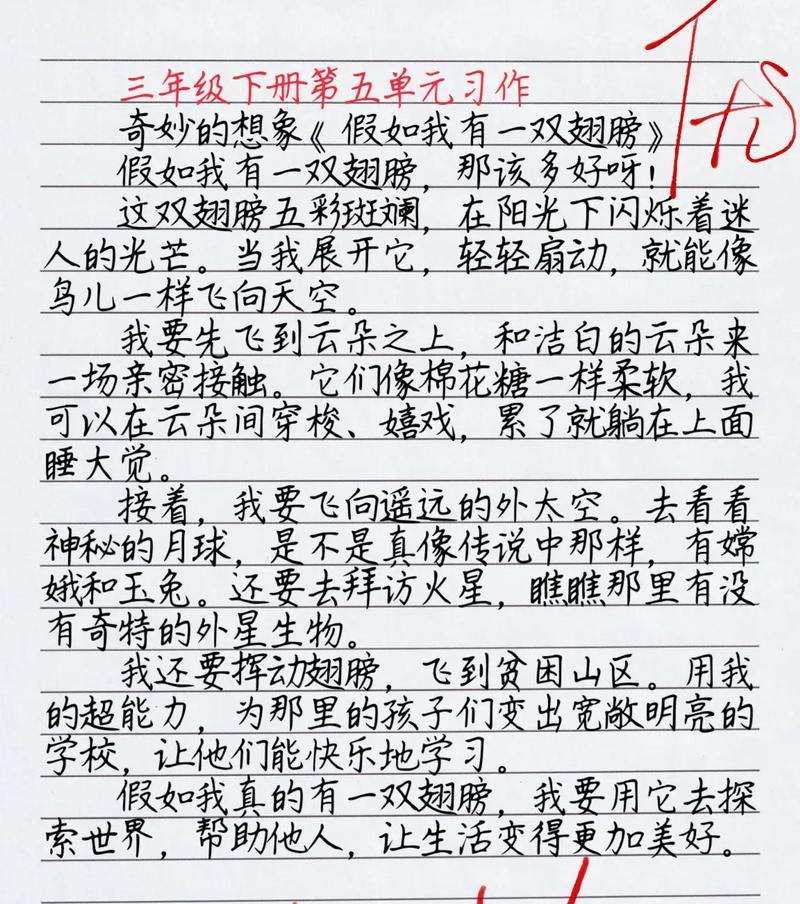 三年级下册第五单元习作
奇妙的想象《假如我有一双翅膀》
假如我有一双翅膀，那该多好呀！
这双翅膀五彩斑斓，在阳光下闪烁着迷
人的光芒。当我展开它，轻轻扇动，就能像
鸟儿一样飞向天空。
我要先飞到云朵之上，和洁白的云朵来
一场亲密接触。它们像棉花糖一样柔软，我
可以在云朵间穿梭、嬉戏，累了就躺在上面
睡大觉。
接着，我要飞向遥远的外太空。去看看
神秘的月球，是不是真像传说中那样，有嫦
娥和玉兔。还要去拜访火星，瞧瞧那里有没
有奇特的外星生物。
我还要挥动翅膀，飞到贫困山区。用我
的超能力，为那里的孩子们变出宽敞明亮的
学校，让他们能快乐地学习。
假如我真的有一双翅膀，我要用它去探
索世界，帮助他人，让生活变得更加美好。